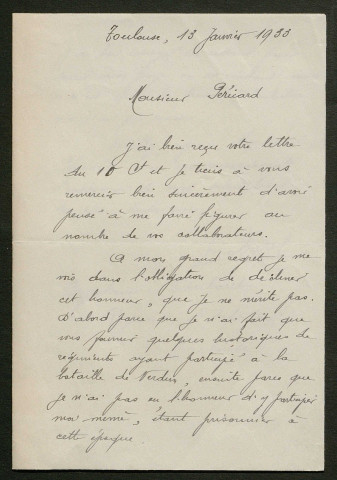 Toulouse, 13 Janvier 1933
Monsieur Péricard
J'ai bien reçu votre lettre
du 10 Ct et je tiens à vous
remercier bien sincèrement d'avoir
pensé à me faire figurer au
nombre de vos collaborateurs.
A mon grand regret je me
vois dans l'obligation de décliner
cet honneur, que je ne mérite pas.
D'abord parce que je n'ai fait que
vous fournir quelques historiques de
régiments ayant participé à la
bataille de Verdun, ensuite parce que
je n'ai pas eu l'honneur d'y participer
moi même, étant prisonnier à
cette époque.